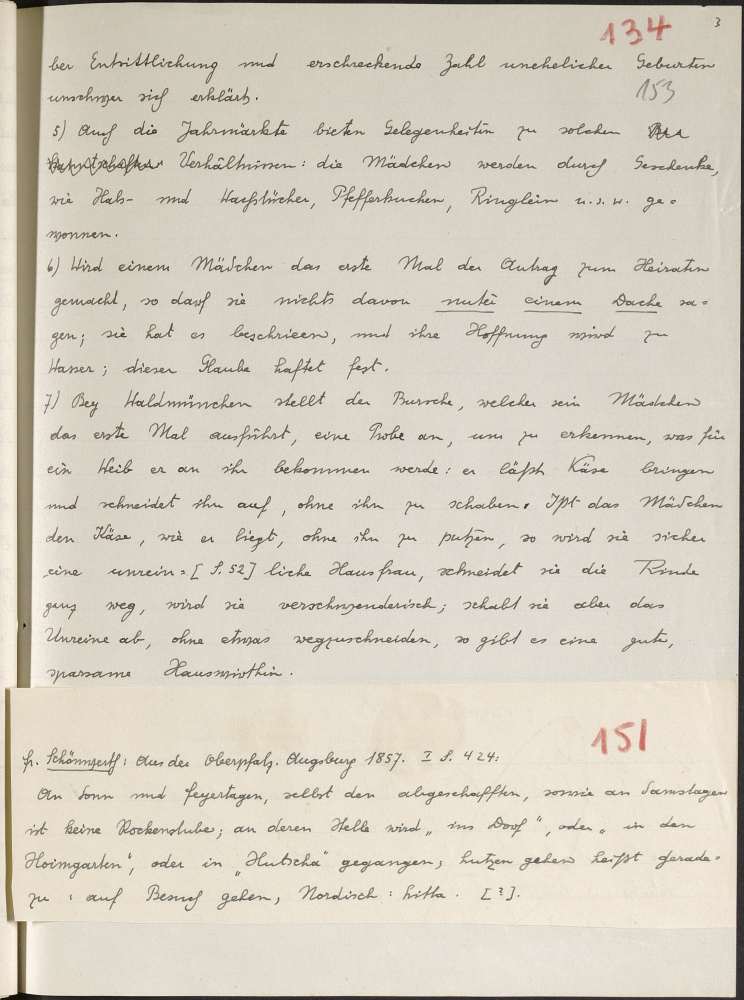 134 3
ber Entsittlichung und erschreckende Zahl unehelicher Geburten
153
unschwer sich erklärt.
5) Auch die Jahrmärkte bieten Gelegenheiten zu solchen
Verhältnissen: die Mädchen werden durch Geschenke,
wie Hals- und Waschtücher, Pfefferkuchen, Ringlein u.s.w. ge=
wonnen.
6) Wird einem Mädchen das erste Mal der Antrag zum Heiraten
gemacht, so darf sie nichts davon unter einem Dache sa=
gen; sie hat es beschrieen, und ihre Hoffnung wird zu
Wasser; dieser Glaube haftet fest.
7) Bey Waldmünchen stellt der Bursche, welcher sein Mädchen
das erste Mal ausführt, eine Probe an, um zu erkennen, was für
ein Weib er an ihr bekommen werde: er läßt Käse bringen
und schneidet ihn auf, ohne ihn zu schaben. Ißt das Mädchen
den Käse, wie er liegt, ohne ihn zu putzen, so wird sie sicher
eine unrein=[S.52] liche Hausfrau, schneidet sie die Rinde
ganz weg, wird sie verschwenderisch; schabt sie aber das
Unreine ab, ohne etwas wegzuschneiden, so gibt es eine gute,
sparsame Hauswirthin.
151
fr. Schönwerth: Aus der Oberpfalz. Augsburg 1857. I S. 424:
An Sonn und feyertagen, selbst den abgeschafften, sowie an Samstagen
ist keine Rockenstube; an deren Stelle wird „ins Dorf", oder „in den
Hoimgarten", oder in „Hutscha" gegangen; hutzen gehen heißt gerade=
zu: auf Besuch gehen, Nordisch: hitta. [?].